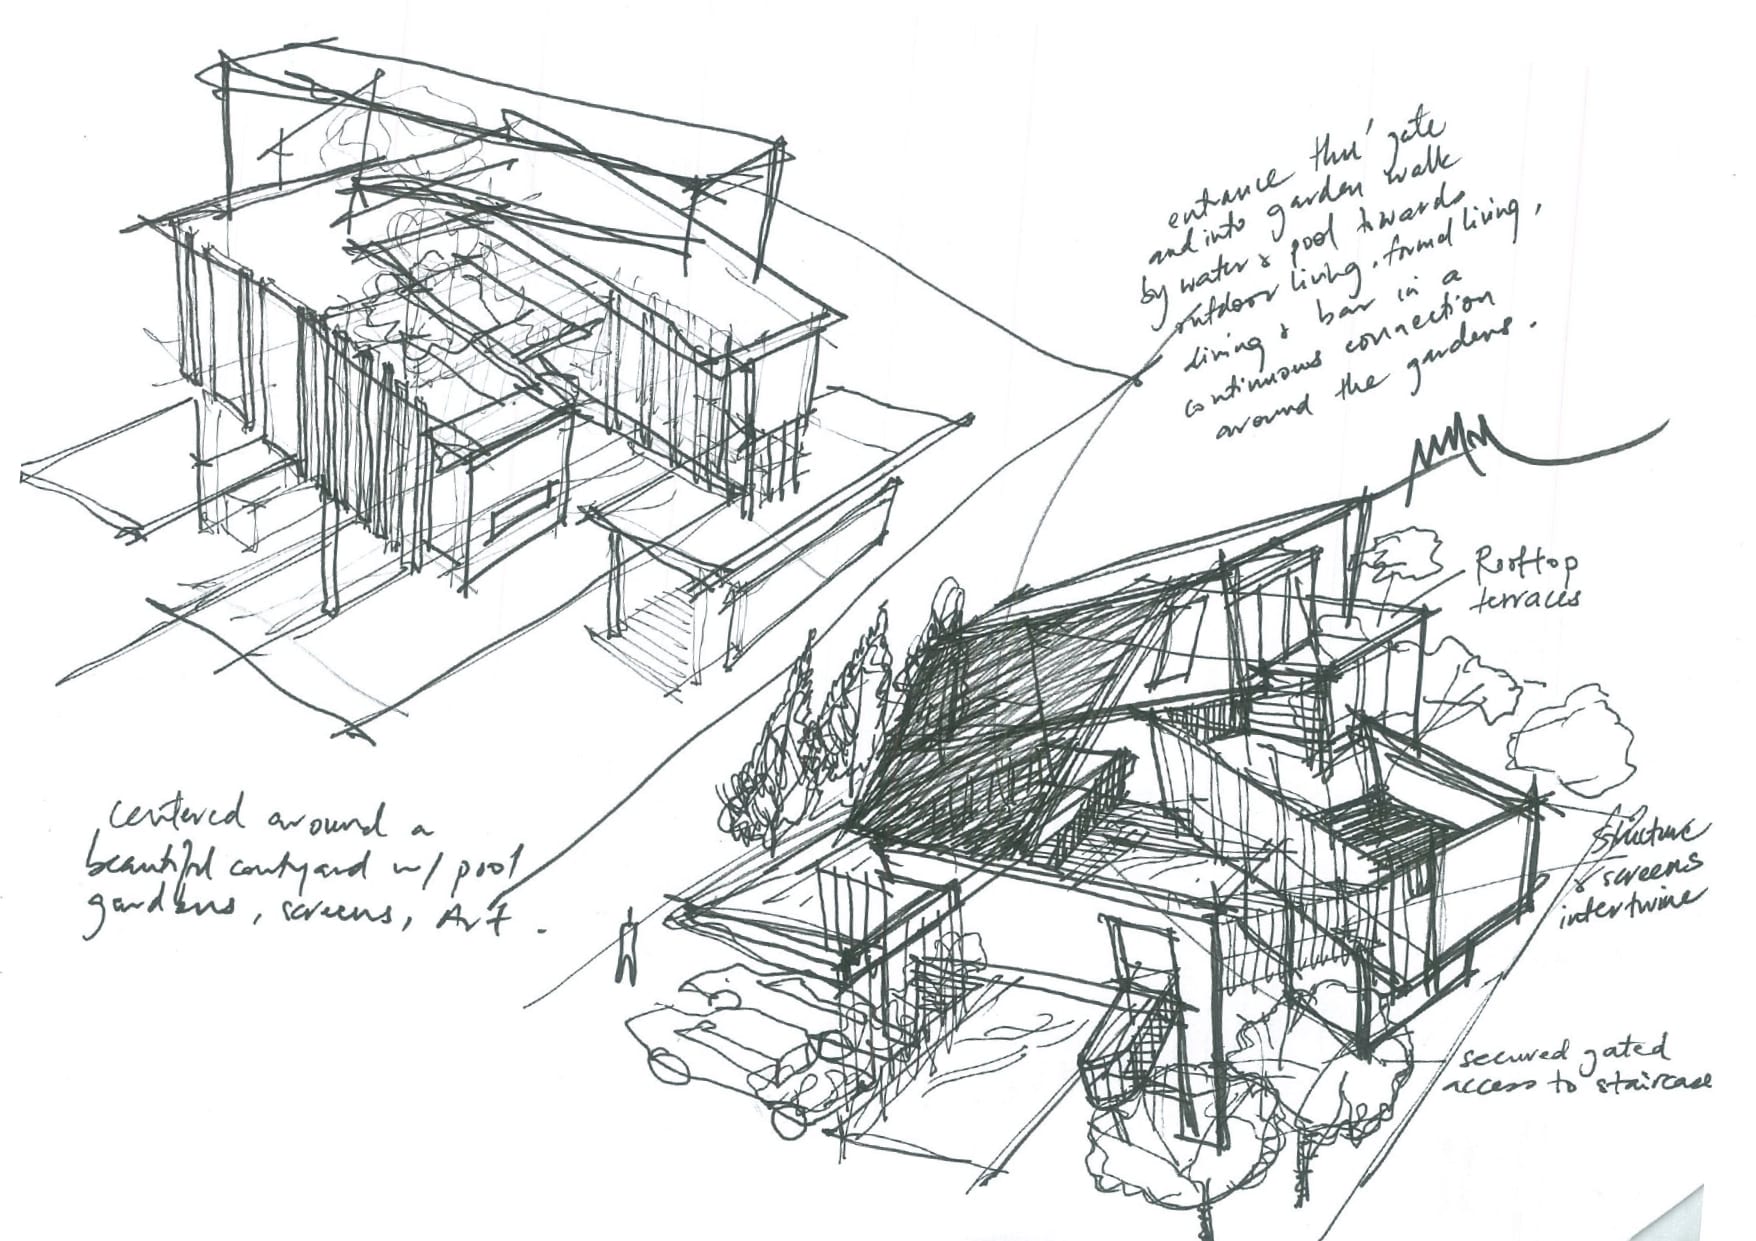 entrance thru' gate
and into garden walk
by water & pool towards
outdoor living, formal living,
living & bar in a
continuous connection
around the gardens.
Rooftop
terraces
structure
& screens
intertwine
secured gated
access to staircase
centered around a
beautiful courtyard w/ pool
gardens, screens, Art.